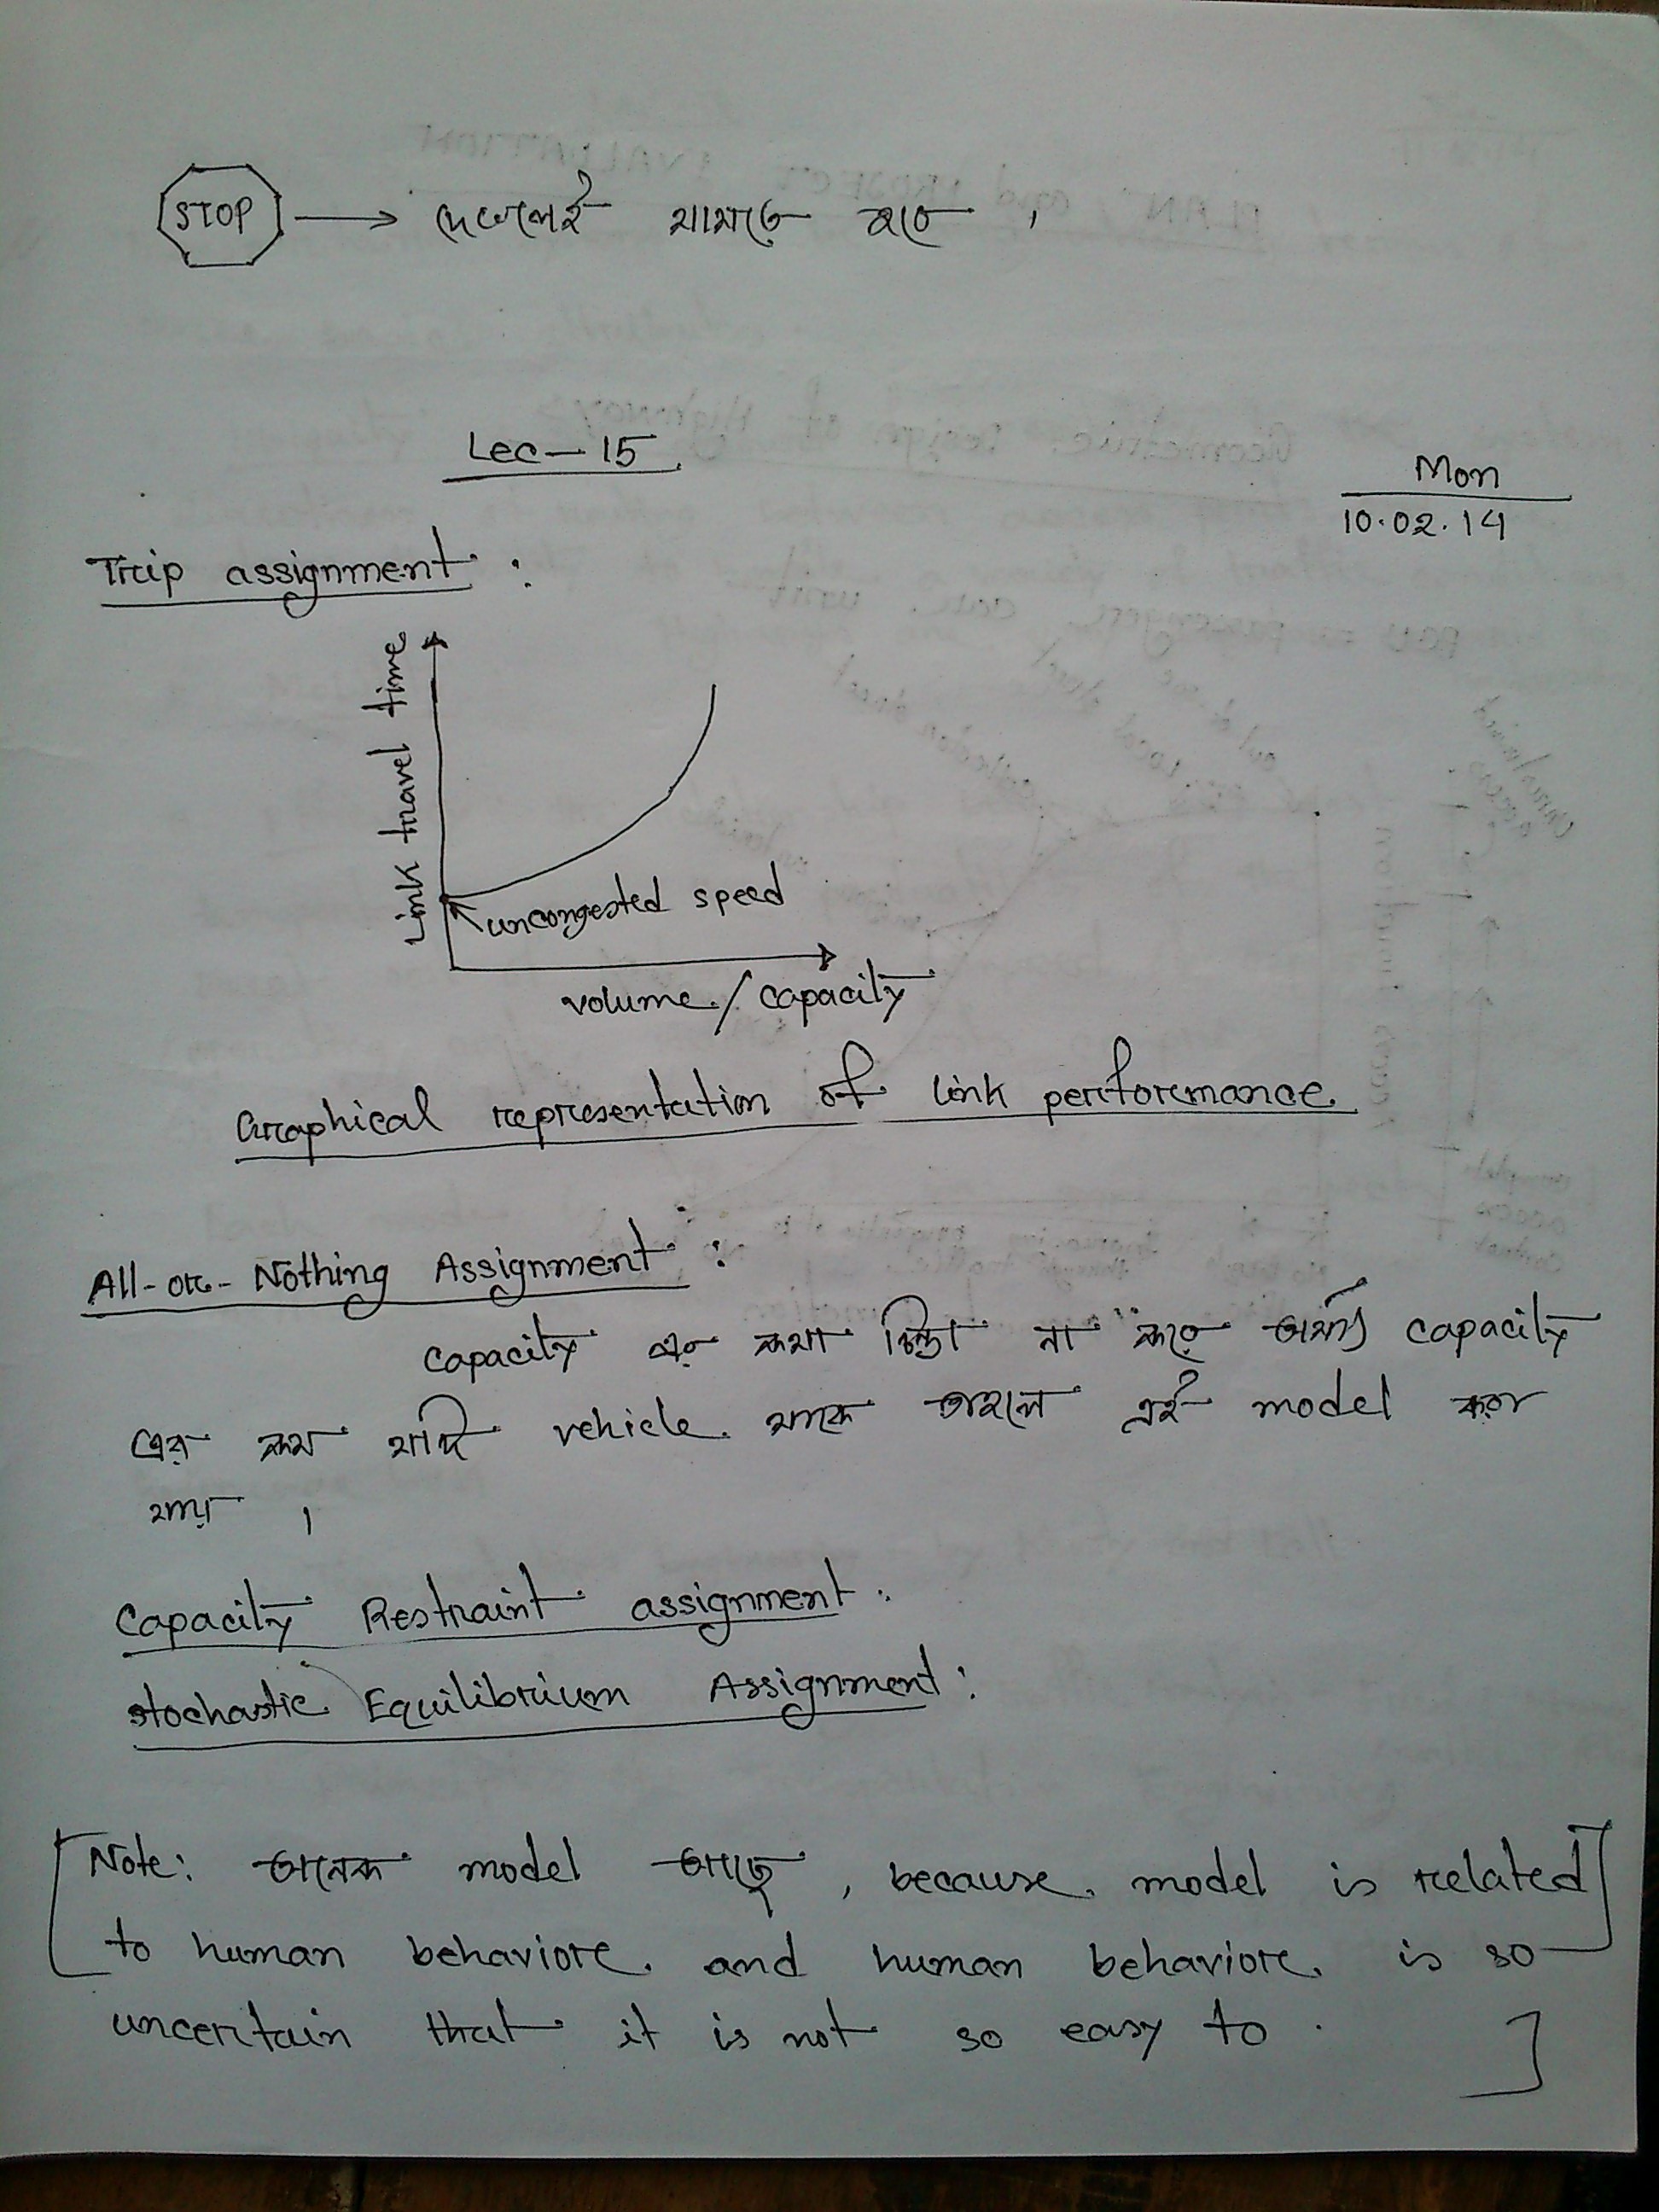 STOP → দেখলেই থামতে হবে ।
Lec-15
Mon
10.02.14
Trip assignment :
Link travel time
uncongested speed
volume/capacity
Graphical representation of link performance.
All-or-Nothing Assignment :
capacity এর কথা চিন্তা না করে অর্থাৎ capacity
এর কম যদি vehicle থাকে তাহলে এই model করা
যায় ।
Capacity Restraint assignment :
Stochastic Equilibrium Assignment :
[Note: অনেক model আছে, because model is related
to human behavior and human behavior is so
uncertain that it is not so easy to . ]